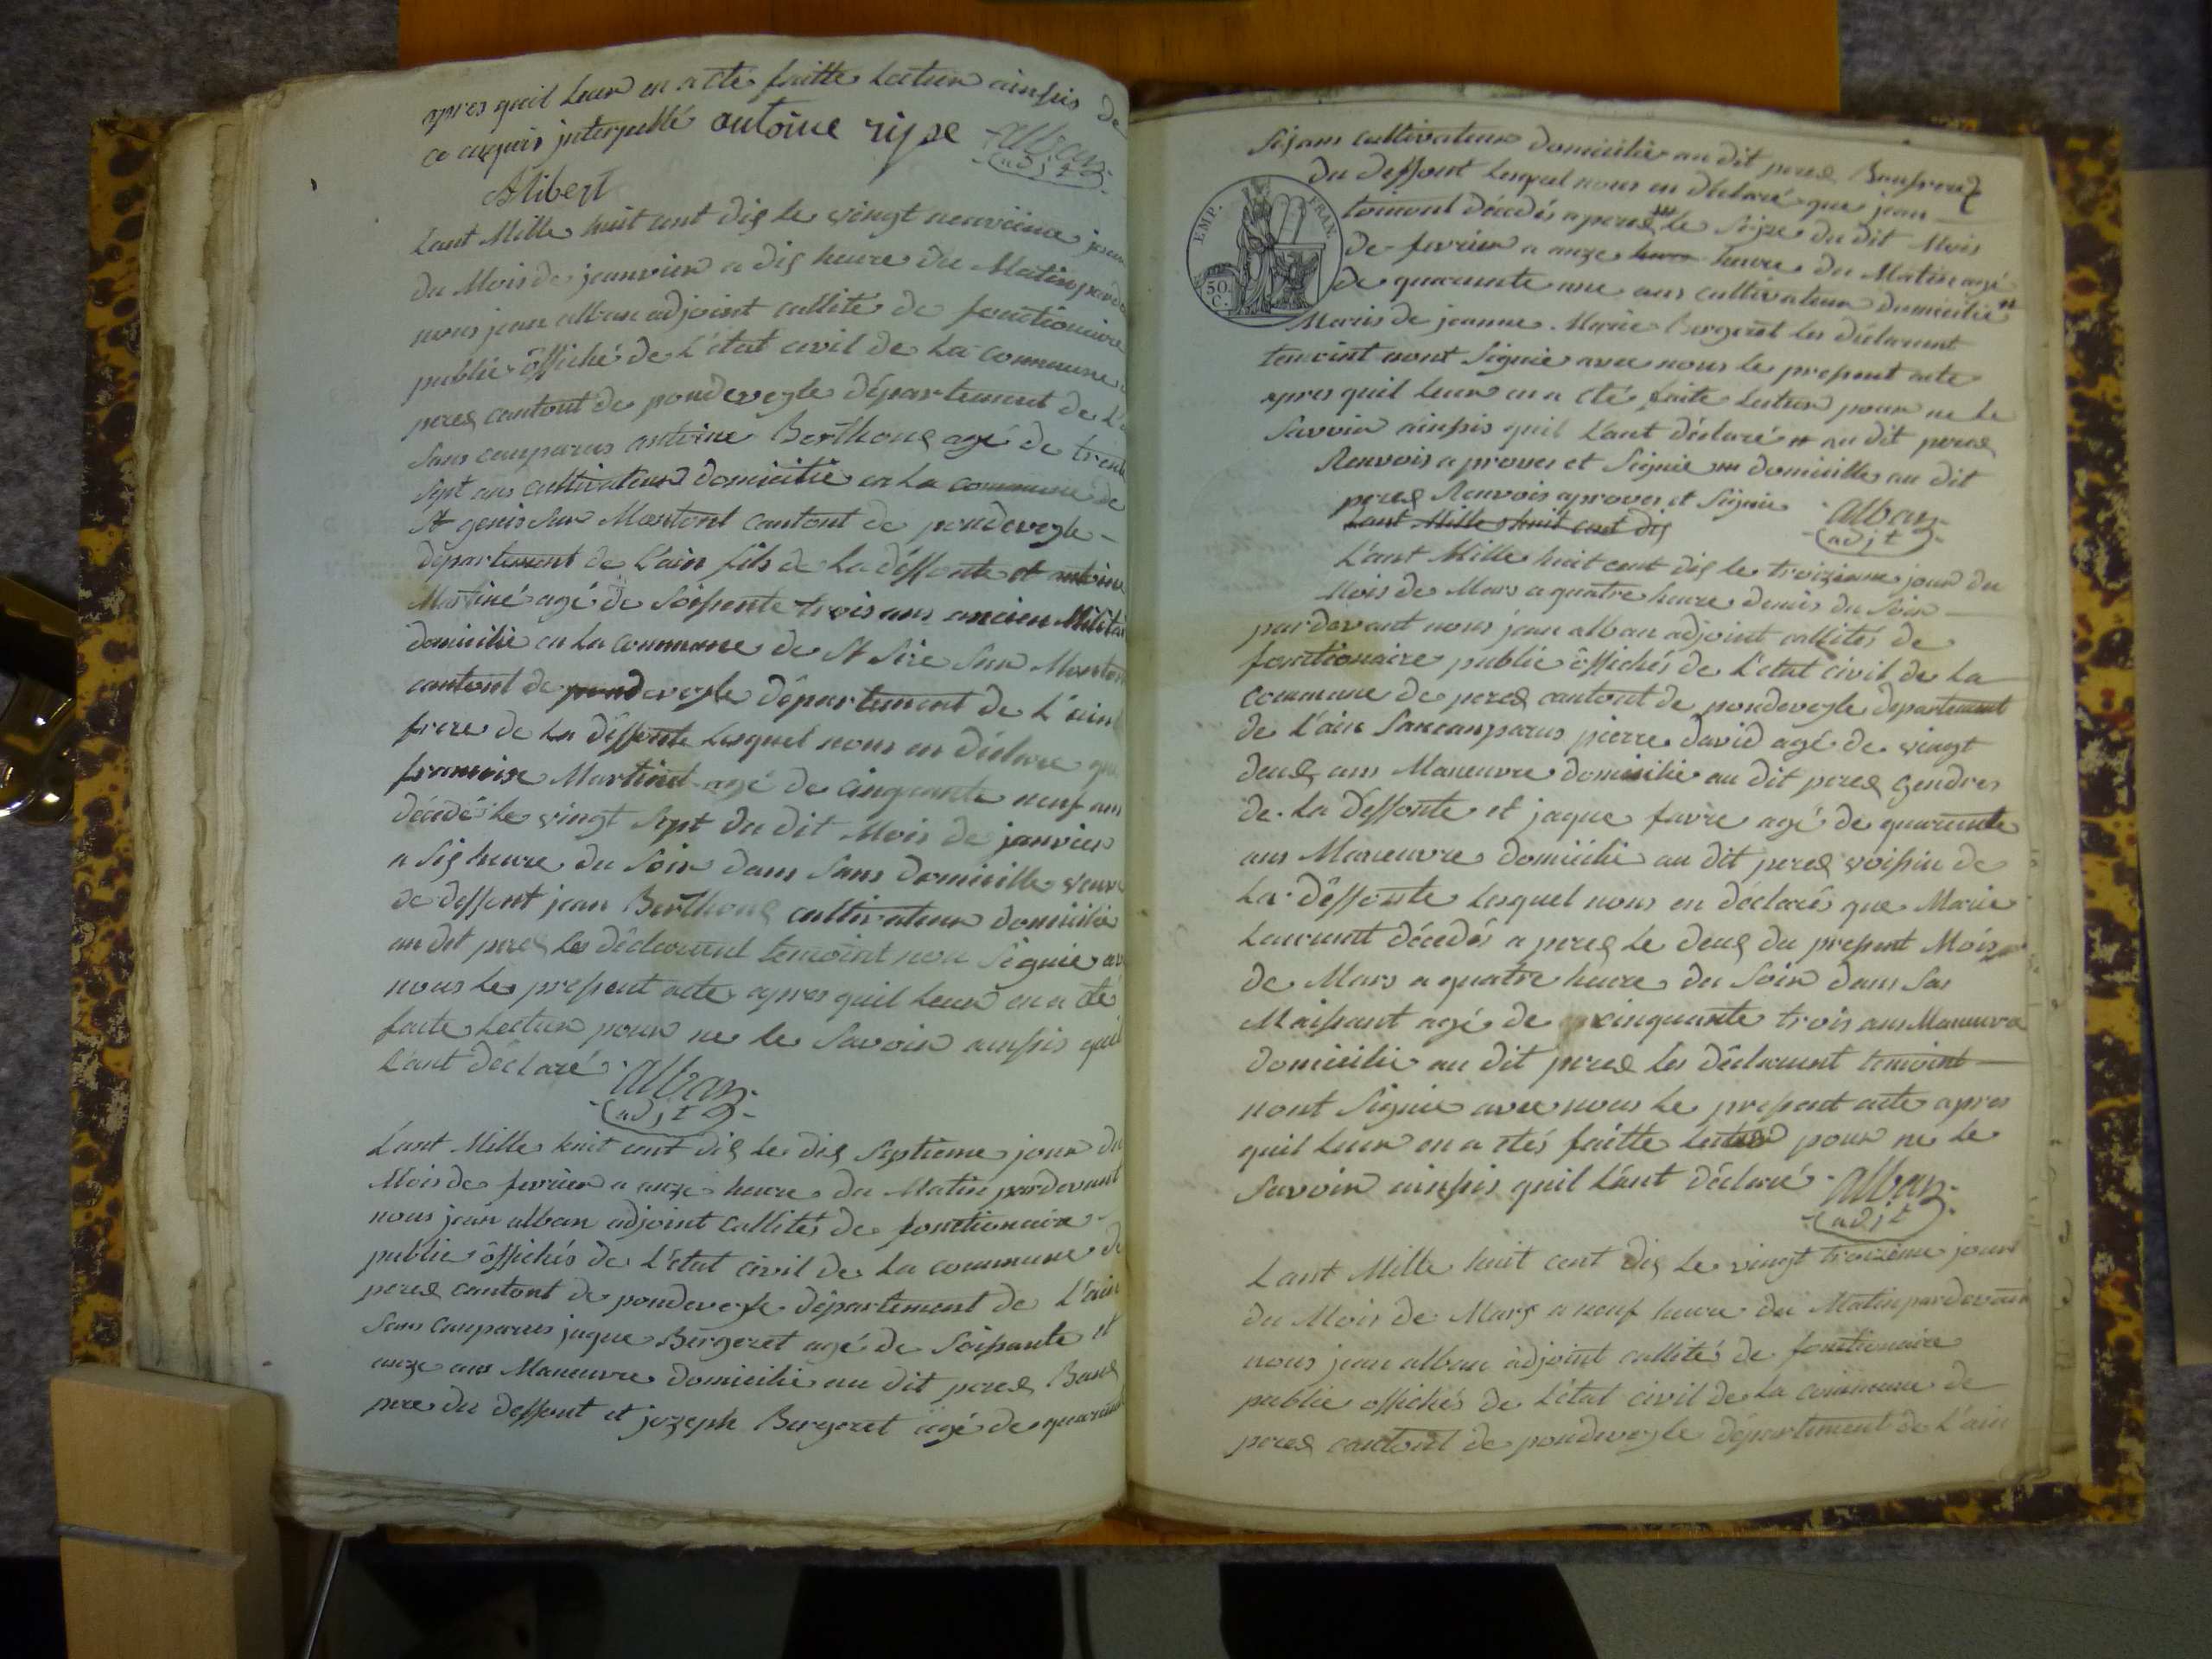 apres quil leur en a eté faitte lectur ainsis de
ce enquis interpellé antoine ripe alban
adjt
Alibert
Lant Mille huit cent dix le vingt neuvieme jour
du Mois de jeanvier a dix heure du Matin pard
nous jean alban adjoint callité de fonctionaire
public offiché de L'état civil de La commune
perex cantont de pondevegle département de L'
Sans comparus antoine Berthoux agé de trente
Sept ans cultivateur domicilié en La commune de
St genis Sur Mentont cantont de pondevegle
département de L'ain fils de La déffonte et antoine
Martiné agé de Soissente trois ans ancien Milita
domicilié en La Commune de St Sire Sur Menton
cantont de pondevegle département de L'ain
frere de La deffonte Lesquel nous en déclare que
francoise Martinet agé de Cinquante neuf ans
décédé le vingt Sept du dit Mois de janvier
a Six heure du Soir dans Sans domicille veuve
de deffent jean Berthoux cultivateur domicilié
au dit perex les déclarent temoint non Signié av
nous le present acte apres quil leur en a eté
faite Lectur pour ne le Savoir ainsis quil
L'ant declaré alban
adjt
Lant Mille huit cent dix le dix Septieme jour du
Mois de fevrier a onze heure du Matin pardevant
nous jean alban adjoint callités de fonctionaire
public offichés de L'état civil de La commune de
perex cantont de pondevegle département de L'ain
Sans comparus jaque Bergeret agé de Soissante et
onze ans Maneuvre domicilié au dit perex Beaux
pere du deffont et jozeph Bergeret agé de quarante
Six ans cultivateur domicilié au dit perex Beaufrere
du deffont Lesquel nous en déclaré que jean
toinont décédés a perex le Seize du dit Mois
de fevrier a onze heure heure du Matin agé
de quarante une ans cultivateur domicilié
EMP. FRAN.
50 C.
Maris de jeanne Marie Bergeret les déclarent
temoint nont Signié avec nous le present acte
apres quil leur en a eté faite lectur pour ne le
Savoir ainsis quil L'ant déclaré au dit perex
Renvois a prover et Signié domicille au dit
perex Renvois aprover et Signié alban
adjt
Lant Mille huit cent dix
L'ant Mille huit cent dix le troizieme jour du
Mois de Mars a quatre heure demis du Soir
pardevant nous jean alban adjoint callités de
fonctionaire public offichés de L'etat civil de La
commune de perex cantont de pondevegle departement
de L'ain Sans comparus pierre david agé de vingt
deux ans Maneuvre domicilié au dit perex gendres
de La deffonte et jaque favre agé de quarante
ans Maneuvre domicilié au dit perex voissin de
La déffonte Lesquel nous en déclaré que Marie
Laurent décedés a perex Le deux du present Mois
de Mars a quatre heure du Soir dans Sas
Maissant agé de cinquante trois ans Maneuvre
domicilié au dit perex les déclarent temoint
nont Signié avec nous Le present acte apres
quil leur en a etés faitte lectur pour ne le
Savoir ainsis quil L'ant déclaré alban
adjt
Lant Mille huit cent dix Le vingt troizieme jour
du Mois de Mars a neuf heure du Matin pardevant
nous jean alban adjoint callités de fonctionaire
public offichés de L'état civil de La commune de
perex cantont de pondevegle département de L'ain